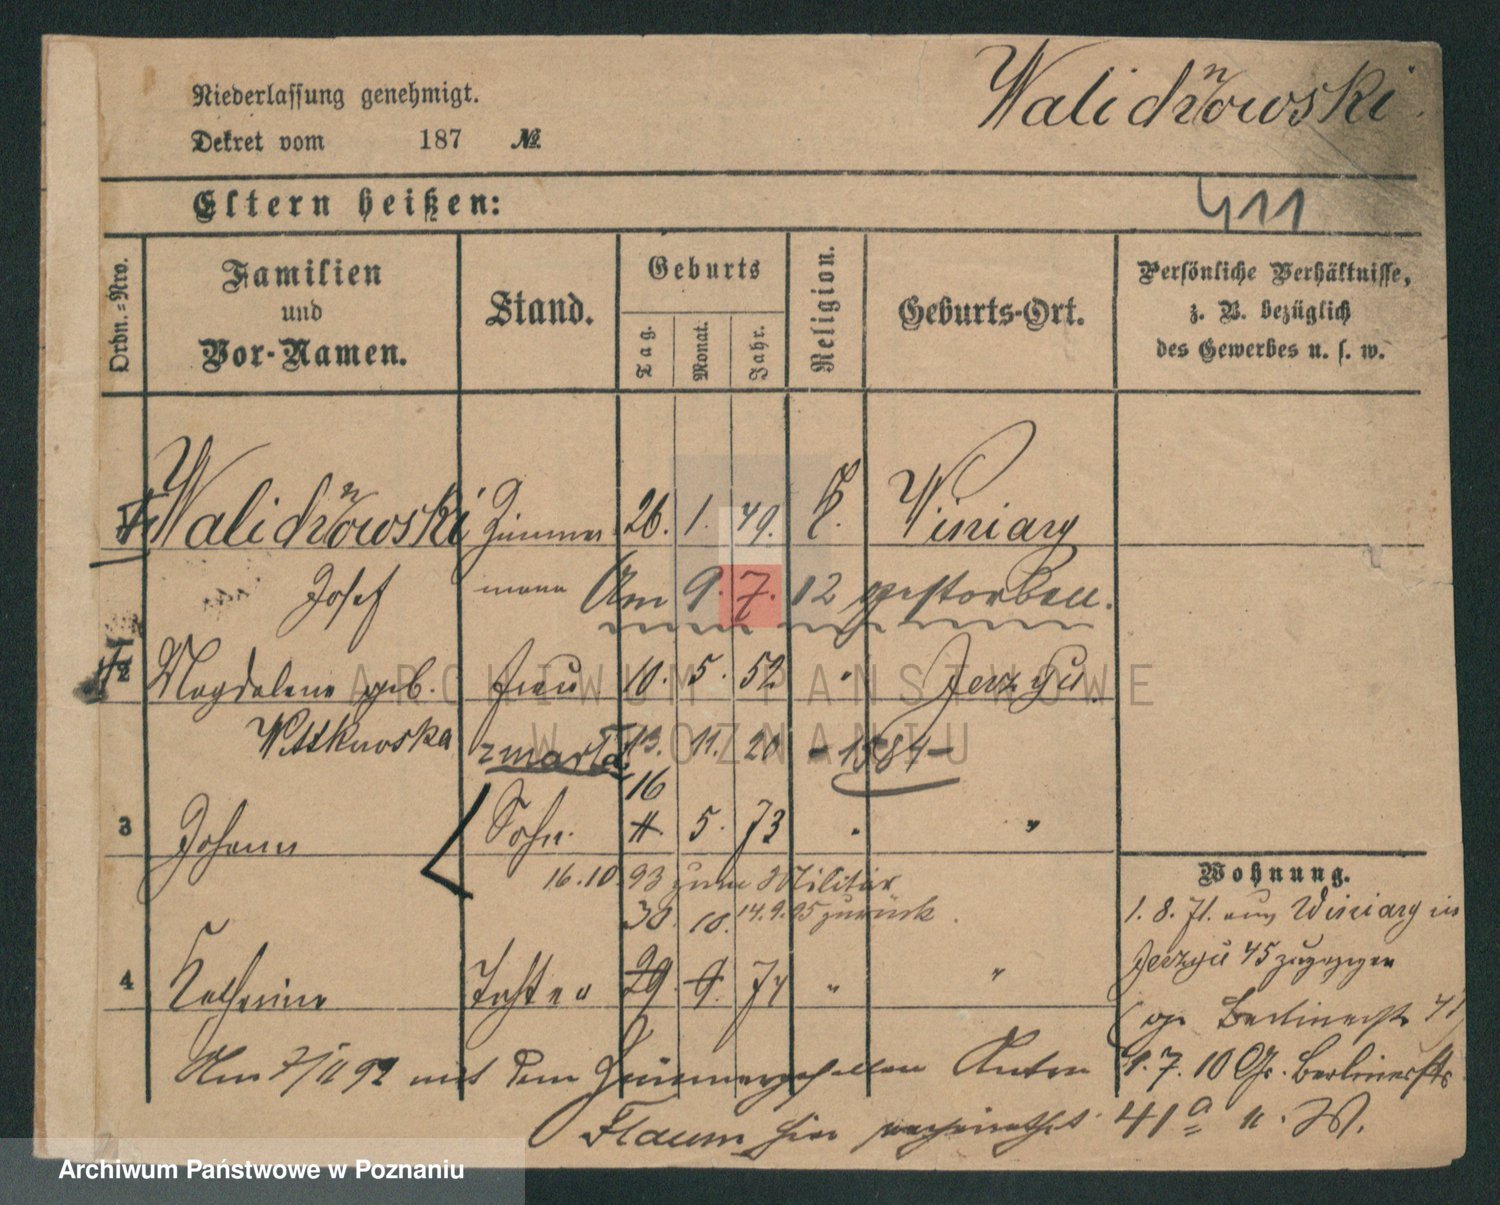 Niederlassung genehmigt.
Dekret vom 187 №
Walichnowski
411
Eltern heißen:
Ordn.-Nro.
Familien
und
Vor-Namen.
Stand.
Geburts
Tag.
Monat.
Jahr.
Religion.
Geburts-Ort.
Persönliche Verhältnisse,
z. B. bezüglich
des Gewerbes u. s. w.
Walichnowski Zimmer 26. 1. 49. k. Winiary
Josef mann Am 9. 7. 12 gestorben.
2 Magdalena geb. frau 10. 5. 52 " Jerzyce
Wittkowska zmarła 13. 11. 20 - 1884 -
16
3 Johann Sohn 11. 5. 73 " "
16.10.93 zum Militär
30. 10. 14.9.95 zurück.
4 Katharina Tochter 29. 9. 74 " "
Wohnung.
1. 8. 71. aus Winiary in
Jerzyce 45 zugezogen
Gr. Berlinerstr. 41
1. 7. 10 Gr. Berlinerstr.
41a u. W.
Am 7/11 92 mit dem Zimmergesellen Anton
Flaum hier verheirathet
ARCHIWUM PAŃSTWOWE
W POZNANIU
Archiwum Państwowe w Poznaniu